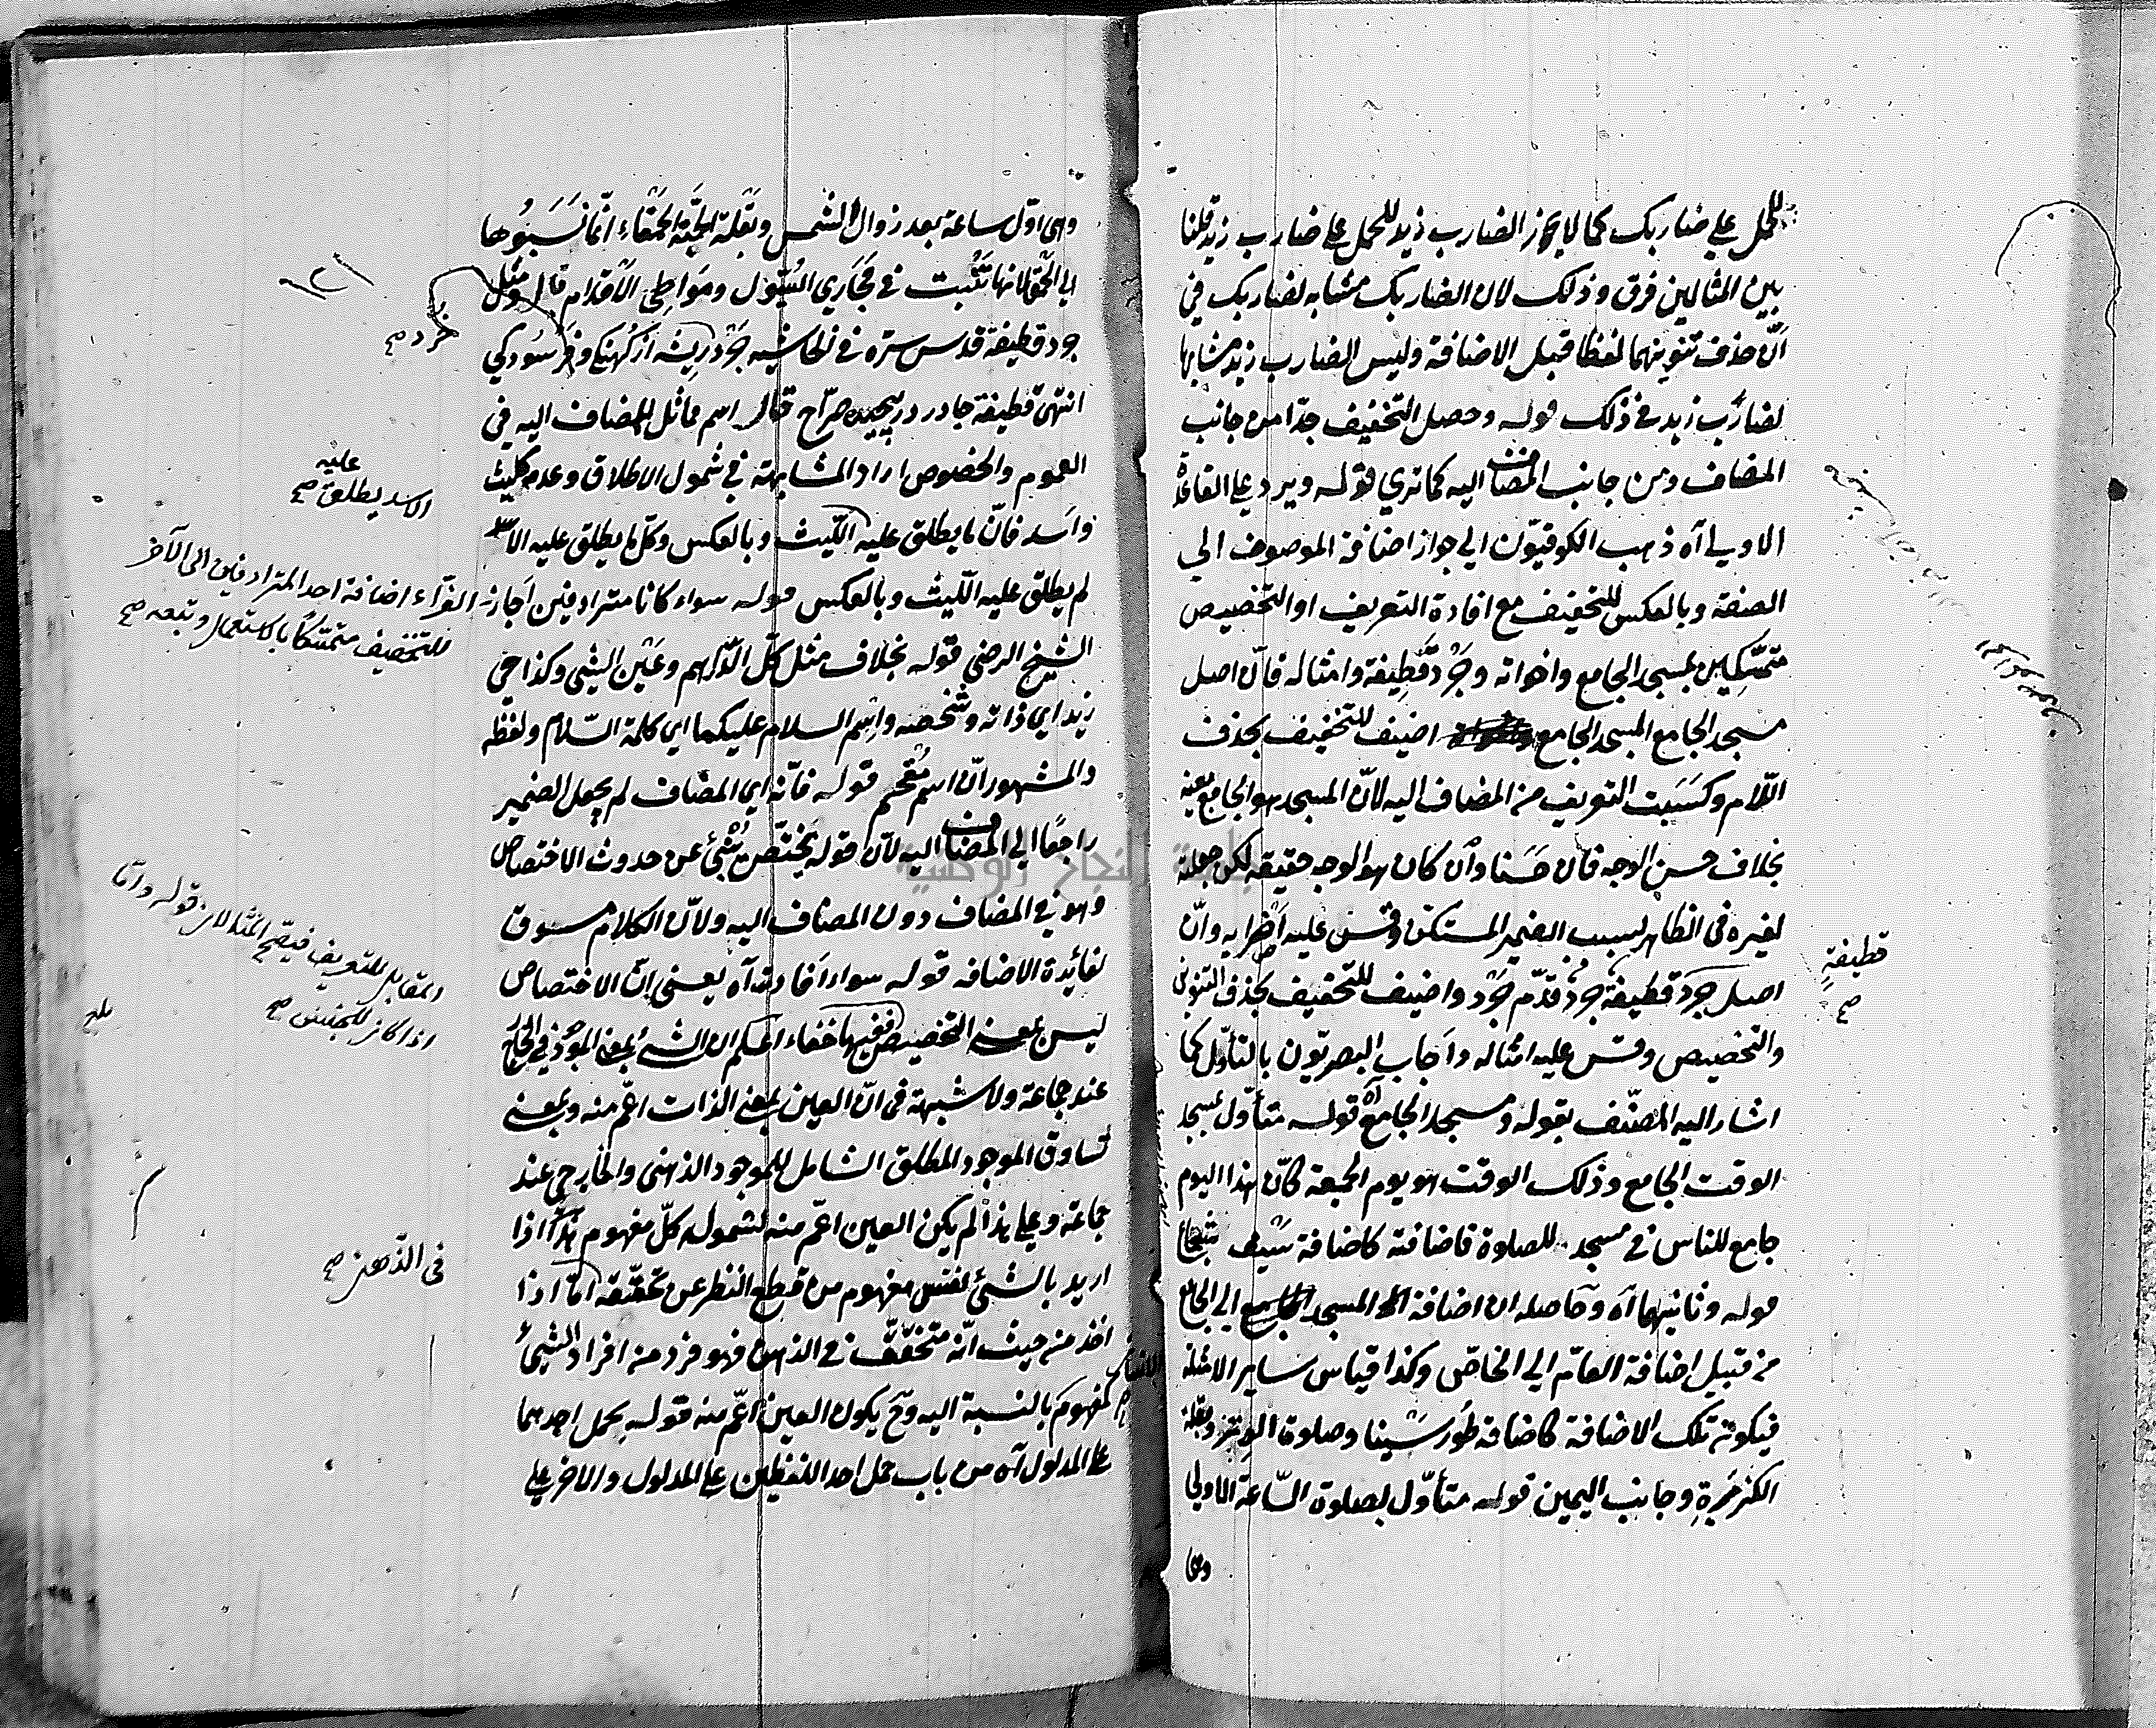 للحمل علي ضاربك كما لا يجوز الضارب زيد للحمل علي ضارب زيد قلنا
بين المثالين فرق وذلك لان الضاربك مشابه لضاربك في
انّ حذف تنوينهما لفظا قبل الاضافة وليس الضارب زيد مشابها
لضارب زيد في ذلك قوله وحصل التخفيف جدّا من جانب
المضاف ومن جانب المضاف اليه كما تري قوله ويرد علي القاعدة
الاولي آه ذهب الكوفيّون الي جواز اضافة الموصوف الي
الصفة وبالعكس للتخفيف مع افادة التعريف او التخصيص
متمسّكين بمسجد الجامع واخواته وجَرْد قَطِيفة وامثاله فانّ اصل
مسجد الجامع المسجد الجامع اضيف للتخفيف بحذف
اللّام وكسَبَت التعريف من المضاف اليه لانّ المسجد هو الجامع بعينه
بخلاف حسن الوجه فان حَسَنا وان كان هو الوجه حقيقة لكن جعلته
لغيره في الظاهر بسبب الضمير المستكن وقس عليه اضرابه وانّ
اصل جرد قطيفة جرد قدّم جَرْد واضيف للتخفيف بحذف التنوين
قطيفةٍ
صح
والتخصيص وقس عليه امثاله واَجاب البصريّون بالتأويل كما
اشار اليه المصنّف بقوله ومسجد الجامع آه قوله متأوّل بمسجد
الوقت الجامع وذلك الوقت هو يوم الجمعة كانّ هذا اليوم
جامع للناس في مسجد للصلوة فاضافته كاضافة سَيْف شجاع
قوله وثانيهما آه وحاصله ان اضافة المسجد الي الجامع
من قبيل اضافة العامّ الي الخاصّ وكذا قياس ساير الامثلة
فيكون تلك الاضافة كاضافة طور سَيْنا وصلوة الوتر وبقلة
الكزبرةِ وجانب اليمين قوله متأوّل بصلوة السّاعة الاولي
وهي
وهي اوّل ساعة بعد زوال الشمس وبَقلة الحبّة الحمقاء انّما نَسَبُوها
الي الحُمق لانها تَنْبت في مَجَاري السُّيُول ومَوَاطِي الاَقْدام قال ومثل
جرد قطيفة قدس سرّه في الحاشيه جَرْد ريشه از كُهنكي وفَرسُودكي
خرد صح
انتهي قطيفة جادر در پيچيده صرّاح قال اسم مماثل للمضاف اليه في
العموم والخصوص اراد المشابهة في شمول الاطلاق وعدمه كليث
واَسَد فانّ ما يطلق عليه الليث وبالعكس وكلّ ما يطلق عليه الاسد
عليه
الاسد يطلق صح
لم يطلق عليه اللّيث وبالعكس قوله سواء كانا مترادفين اَجاز الفرّاء اضافة احد المترادفين الي الآخر
للتخفيف متمسّكًا بالاستعمال وتبعه صح
الشيخ الرضي قوله بخلاف مثل كلّ الدّراهم وعَيْن الشيئ وكذا حي
زيد اي ذاته وشخصه واِسْم السلام عليكما اي كلمة السّلام ولفظه
والمشهور انّ اسم مُقْحَم قوله فانّه اي المضاف لم يجعل الضمير
راجعًا الي المضاف اليه لانّ قوله يختصّ يُنْبئ عن حدوث الاختصاص
وهو في المضاف دون المضاف اليه ولانّ الكلام مسوق
لفائدة الاضافه قوله سواء اَفادت آه يعني انّ الاختصاص
ليس بمعني التخصيص ففيها خفاء الحكم ان الشئ بمعني الموجود في الخارج
المقابل للتعريف فيصّح المثالان قوله وامّا
اذا كان للجنس صح
بلغ
عند جماعة ولا شبهة في انّ العين بمعني الذات اعمّ منه وبمعني
تساوق الموجود المطلق الشامل للموجود الذهني والخارجي عند
جماعة وعلي هذا لم يكن العين اعمّ منه لشموله كلّ مفهوم هذا اذا
اريد بالشئ نفس مفهوم من قطع النظر عن تحقّقه امّا اذا
في الذّهن صح
اخذ من حيث انّه متحقّق في الذهن فهو فرد من افراد الشيئ
كمفهوم بالنسبة اليه وح يكون العين اعمّ منه قوله بحمل احدهما
علي المدلول آه من باب حمل احد اللفظين علي المدلول والاخر علي